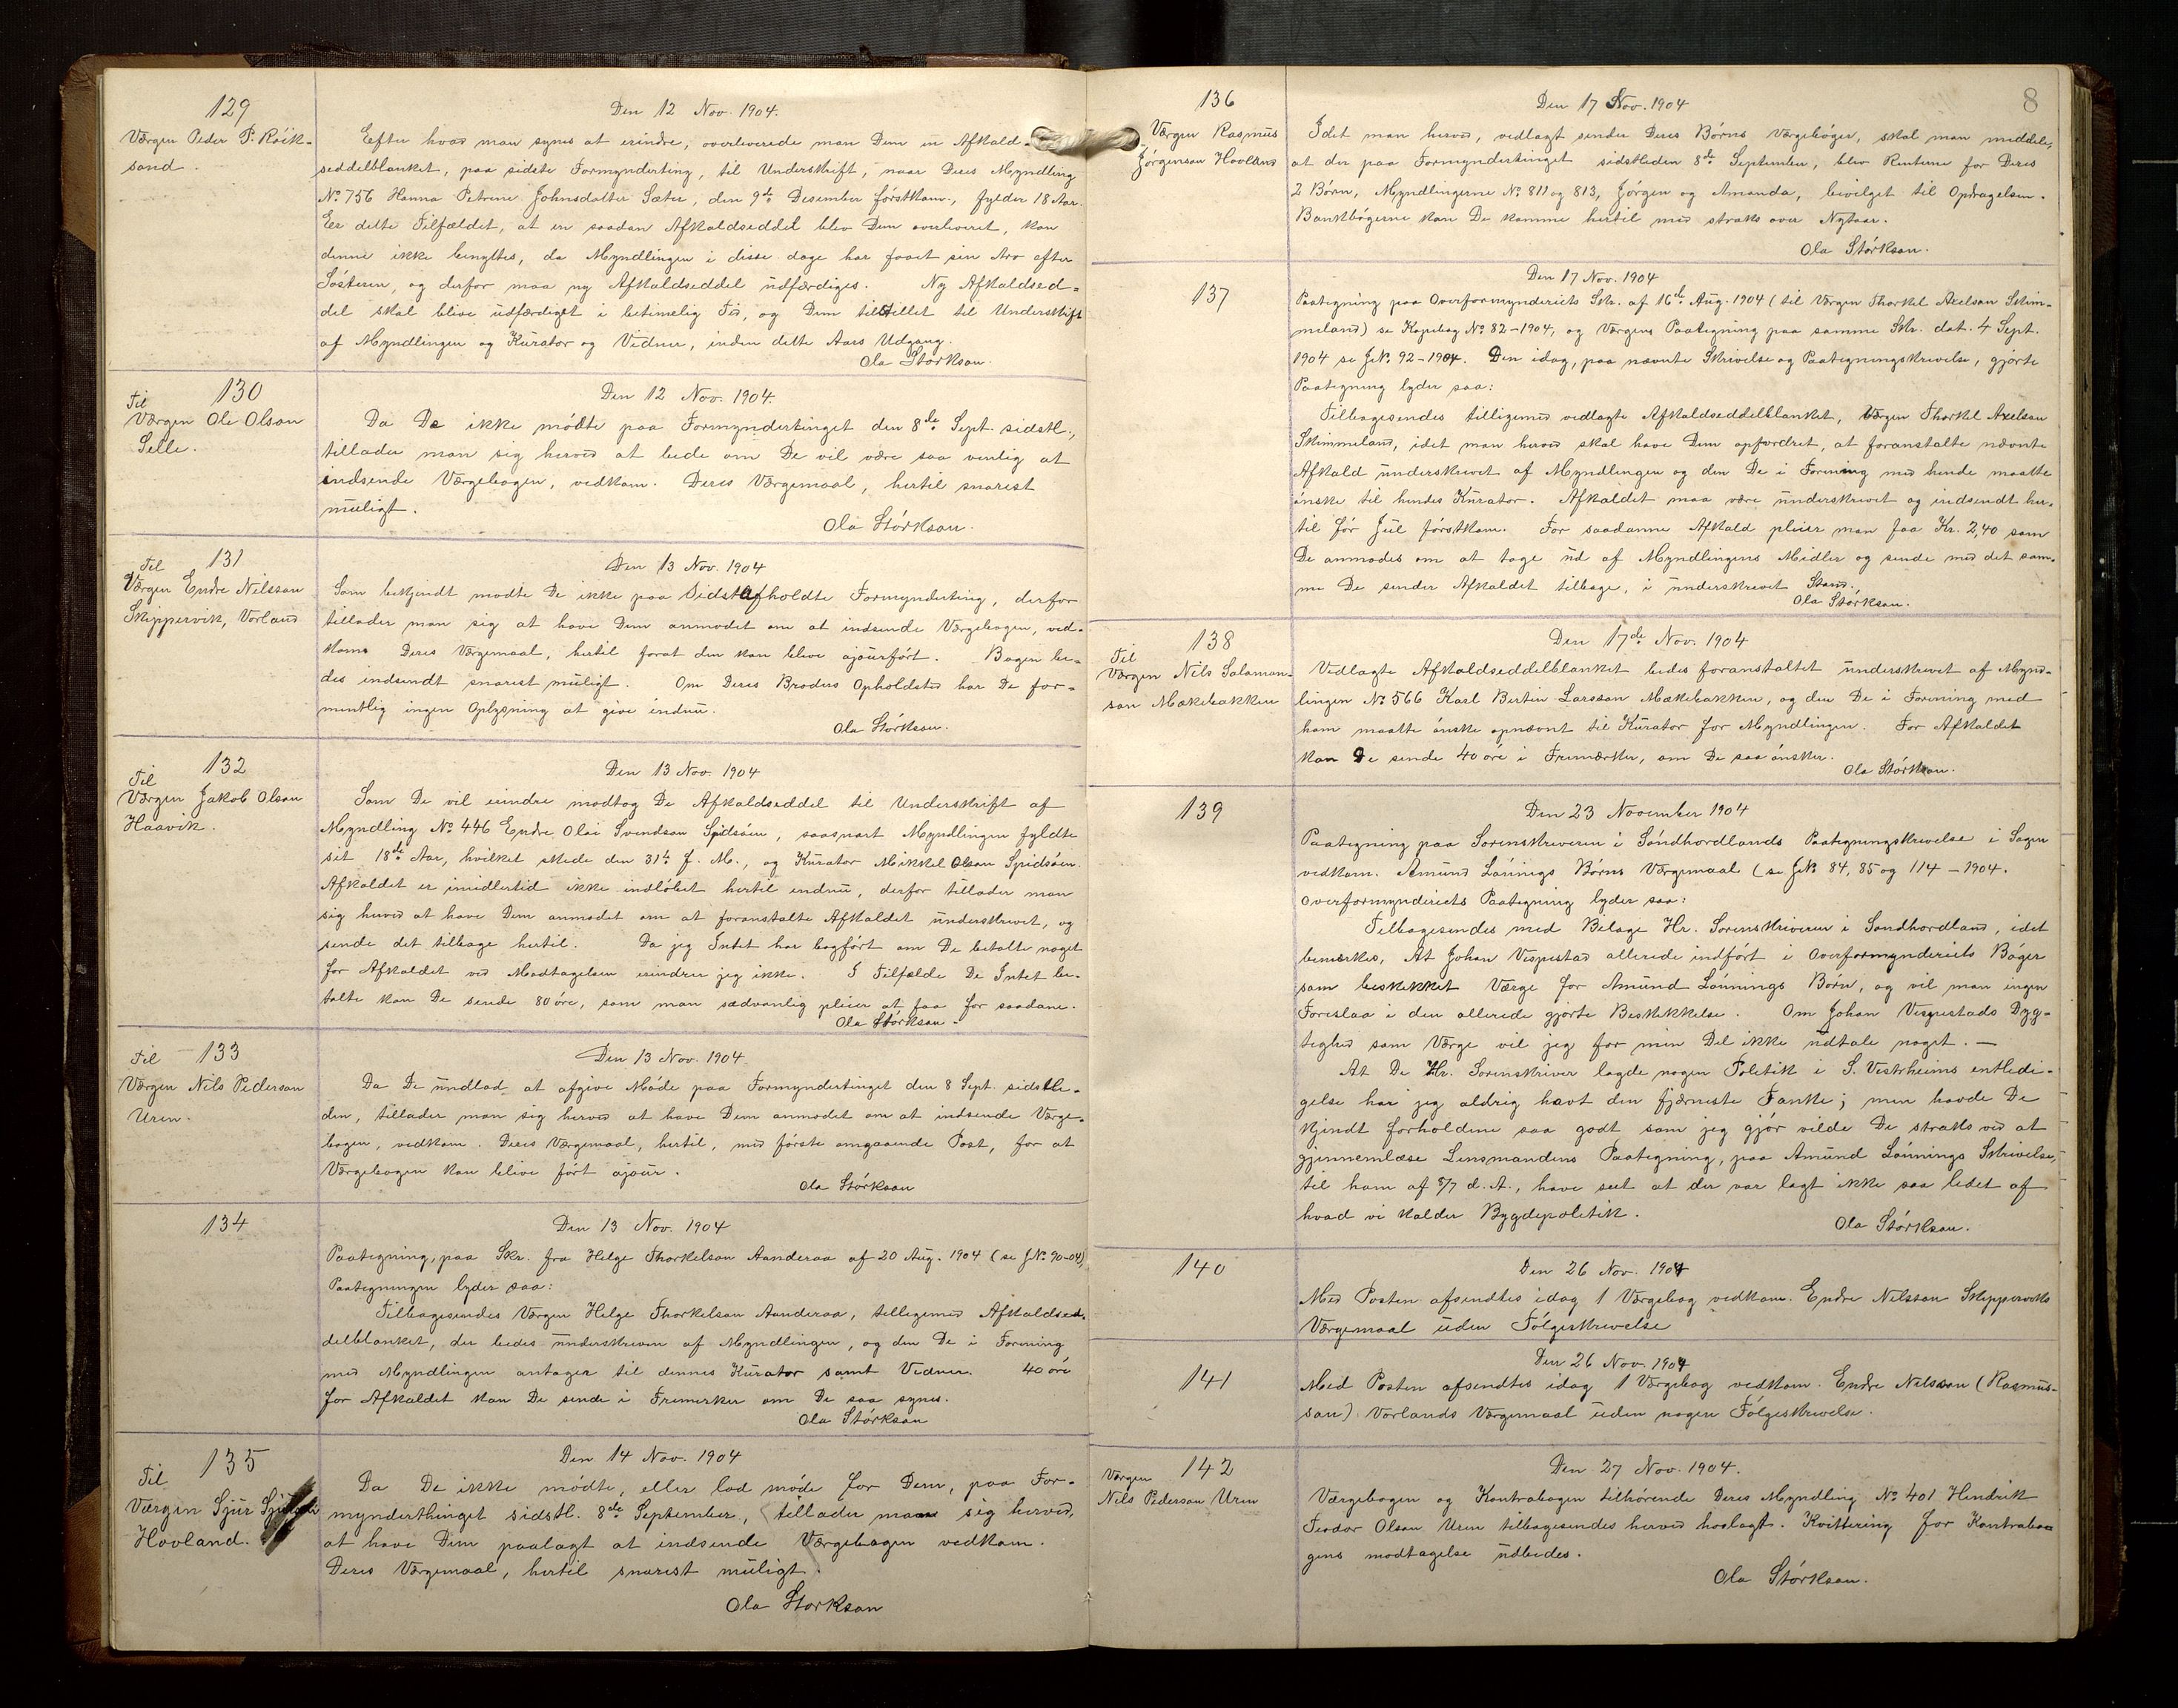 129
Værgen Peder P. Røik-
sand.
Den 12 Nov. 1904.
Efter hvad man synes at erindre, overleverede man Dem en Afkald-
seddelblanket, paa sidste Formynderting, til Underskrift, naar Deres Myndling
No 756 Hanna Petrine Johnsdatter Sæter, den 9de Desember førstkom., fylder 18 Aar.
Er dette Tilfældet, at en saadan Afkaldseddel blev Dem overleveret, kan
denne ikke benyttes, da Myndlingen i disse dage har faaet sin Arv efter
Søsteren, og derfor maa ny Afkaldseddel udfærdiges. Ny Afkaldsed-
del skal blive udfærdiget i betimelig Tid, og Dem tilstillet til Underskrift
af Myndlingen og Kurator og Vidner, inden dette Aars Udgang.
Ola Størkson.
130
Til
Værgen Ole Olson
Selle.
Den 12 Nov. 1904.
Da De ikke mødte paa Formyndertinget den 8de Sept. sidstl.,
tillader man sig herved at bede om De vil være saa venlig at
indsende Værgebogen, vedkom. Deres Værgemaal, hertil snarest
muligt.
Ola Størkson.
131
Til
Værgen Endre Nilsson
Skippervik, Vorland
Den 13 Nov. 1904
Som bekjendt mødte De ikke paa sidst afholdte Formynderting, derfor
tillader man sig at have Dem anmodet om at indsende Værgebogen, ved-
kom. Deres Værgemaal, hertil forat den kan blive ajourført. Bogen be-
des indsendt snarest muligt. Om Deres Broders Opholdsted har De for-
mentlig ingen Oplysning at give endnu.
Ola Størkson.
132
Til
Værgen Jakob Olson
Haavik.
Den 13 Nov. 1904
Som De vil erindre modtog De Afkaldseddel til Underskrift af
Myndling No 446 Endre Olai Svendson Spidsøen, saasnart Myndlingen fyldte
sit 18de Aar, hvilket skede den 31te f. M., og Kurator Mikkel Olson Spidsøen.
Afkaldet er imidlertid ikke indløbet hertil endnu, derfor tillader man
sig herved at have Dem anmodet om at foranstalte Afkaldet underskrevet, og
sende det tilbage hertil. Da jeg Intet har bogført om De betalte noget
for Afkaldet ved Modtagelsen erindrer jeg ikke. I Tilfælde De Intet be-
talte kan De sende 80 øre, som man sædvanlig pleier at faa for saadane.
Ola Størkson.
133
Til
Værgen Nils Pederson
Uren.
Den 13 Nov. 1904
Da De undlod at afgive Møde paa Formyndertinget den 8 Sept. sidstle-
den, tillader man sig herved at have Dem anmodet om at indsende Værge-
bogen, vedkom. Deres Værgemaal, hertil, med første omgaaende Post, for at
Værgebogen kan blive ført ajour.
Ola Størkson
134
Den 13 Nov. 1904
Paategning, paa Skr. fra Helge Thorkelson Aanderaa af 20 Aug. 1904 (se J.No. 90-04)
Paategningen lyder saa:
Tilbagesendes Værgen Helge Thorkelson Aanderaa, tilligemed Afkaldsed-
delblanket, der bedes underskreven af Myndlingen, og den De i Forening
med Myndlingen antager til dennes Kurator samt Vidner. 40 øre
for Afkaldet kan De sende i Frimerker om De saa synes.
Ola Størkson
135
Til
Værgen Sjur
Hovland.
Den 14 Nov. 1904
Da De ikke mødte, eller lod møde for Dem, paa For-
mynderthinget sidstl. 8de September, tillader man sig herved,
at have Dem paalagt at indsende Værgebogen vedkom.
Deres Værgemaal, hertil snarest muligt.
Ola Størkson
8
136
Værgen Rasmus
Jørgenson Hovland
Den 17 Nov. 1904
Idet man herved, vedlagt sender Deres Børns Værgebøger, skal man meddele,
at der paa Formyndertinget sidstleden 8de September, blev Renterne for Deres
2 Børn, Myndlingerne No 811 og 813, Jørgen og Amanda, bevilget til Opdragelsen.
Bankbøgerne kan De komme hertil med straks over Nytaar.
Ola Størkson.
137
Den 17 Nov. 1904
Paategning paa Overformynderiets Skr. af 16de Aug. 1904 (til Værgen Thorkel Axelson Skim-
meland) se Kopibog No 82-1904, og Værgens Paategning paa samme Skr. dat. 4 Sept.
1904 se J.No. 92-1904. Den idag, paa nævnte Skrivelse og Paategningskrivelse, gjorte
Paategning lyder saa:
Tilbagesendes tilligemed vedlagte Afkaldseddelblanket, Værgen Thorkel Axelson
Skimmeland, idet man herved skal have Dem opfordret, at foranstalte nævnte
Afkald underskrevet af Myndlingen og den De i Forening med hende maatte
ønske til hendes Kurator. Afkaldet maa være underskrevet og indsendt her-
til før Jul førstkom. For saadanne Afkald pleier man faa Kr. 2,40 som
De anmodes om at tage ud af Myndlingens Midler og sende med det sam-
me De sender Afkaldet tilbage, i underskrevet Stand.
Ola Størkson.
138
Til
Værgen Nils Salamon-
son Mækebakken
Den 17de Nov. 1904
Vedlagte Afkaldseddelblanket bedes foranstaltet underskrevet af Mynd-
lingen No 566 Karl Bertin Larsson Mækebakken, og den De i Forening med
ham maatte ønske opnævnt til Kurator for Myndlingen. For Afkaldet
kan De sende 40 øre i Frimærker, om De saa ønsker.
Ola Størkson.
139
Den 23 November 1904
Paategning paa Sorenskriveren i Søndhordlands Paategningskrivelse i Sagen
vedkom. Amund Lønnings Børns Værgemaal (se J.No 84, 85 og 114 - 1904.
Overformynderiets Paategning lyder saa:
Tilbagesendes med Bilage Hr. Sorenskriveren i Søndhordland, idet
bemærkes, At Johan Vespestad allerede indført i Overformynderiets Bøger
som beskikket Værge for Amund Lønnings Børn, og vil man ingen
Foreslaa i den allerede gjorte Beskikkelse. Om Johan Vespestads Dyg-
tighed som Værge vil jeg for min Del ikke udtale noget. —
At De Hr. Sorenskriver lagde nogen Politik i S. Vestrheims entledi-
gelse har jeg aldrig havt den fjærneste Tanke; men havde De
kjendt forholdene saa godt som jeg gjør vilde De straks ved at
gjennemlæse Lensmandens Paategning, paa Amund Lønnings Skrivelse,
til ham af 8/7 d. A., have seet at der var lagt ikke saa lidet af
hvad vi kalder Bygdepolitik.
Ola Størkson.
140
Den 26 Nov. 1904
Med Posten afsendtes idag 1 Værgebog vedkom. Endre Nilsson Skipperviks
Værgemaal uden Følgeskrivelse
141
Den 26 Nov. 1904
Med Posten afsendtes idag 1 Værgebog vedkom. Endre Nilsson (Rasmus-
son) Vorlands Værgemaal uden nogen Følgeskrivelse.
142
Værgen
Nils Pederson Uren
Den 27 Nov. 1904.
Værgebogen og Kontrabogen tilhørende Deres Myndling No 401 Hendrik
Teodor Olson Uren tilbagesendes herved hoslagt. Kvittering for Kontrabo-
gens modtagelse udbedes.
Ola Størkson.